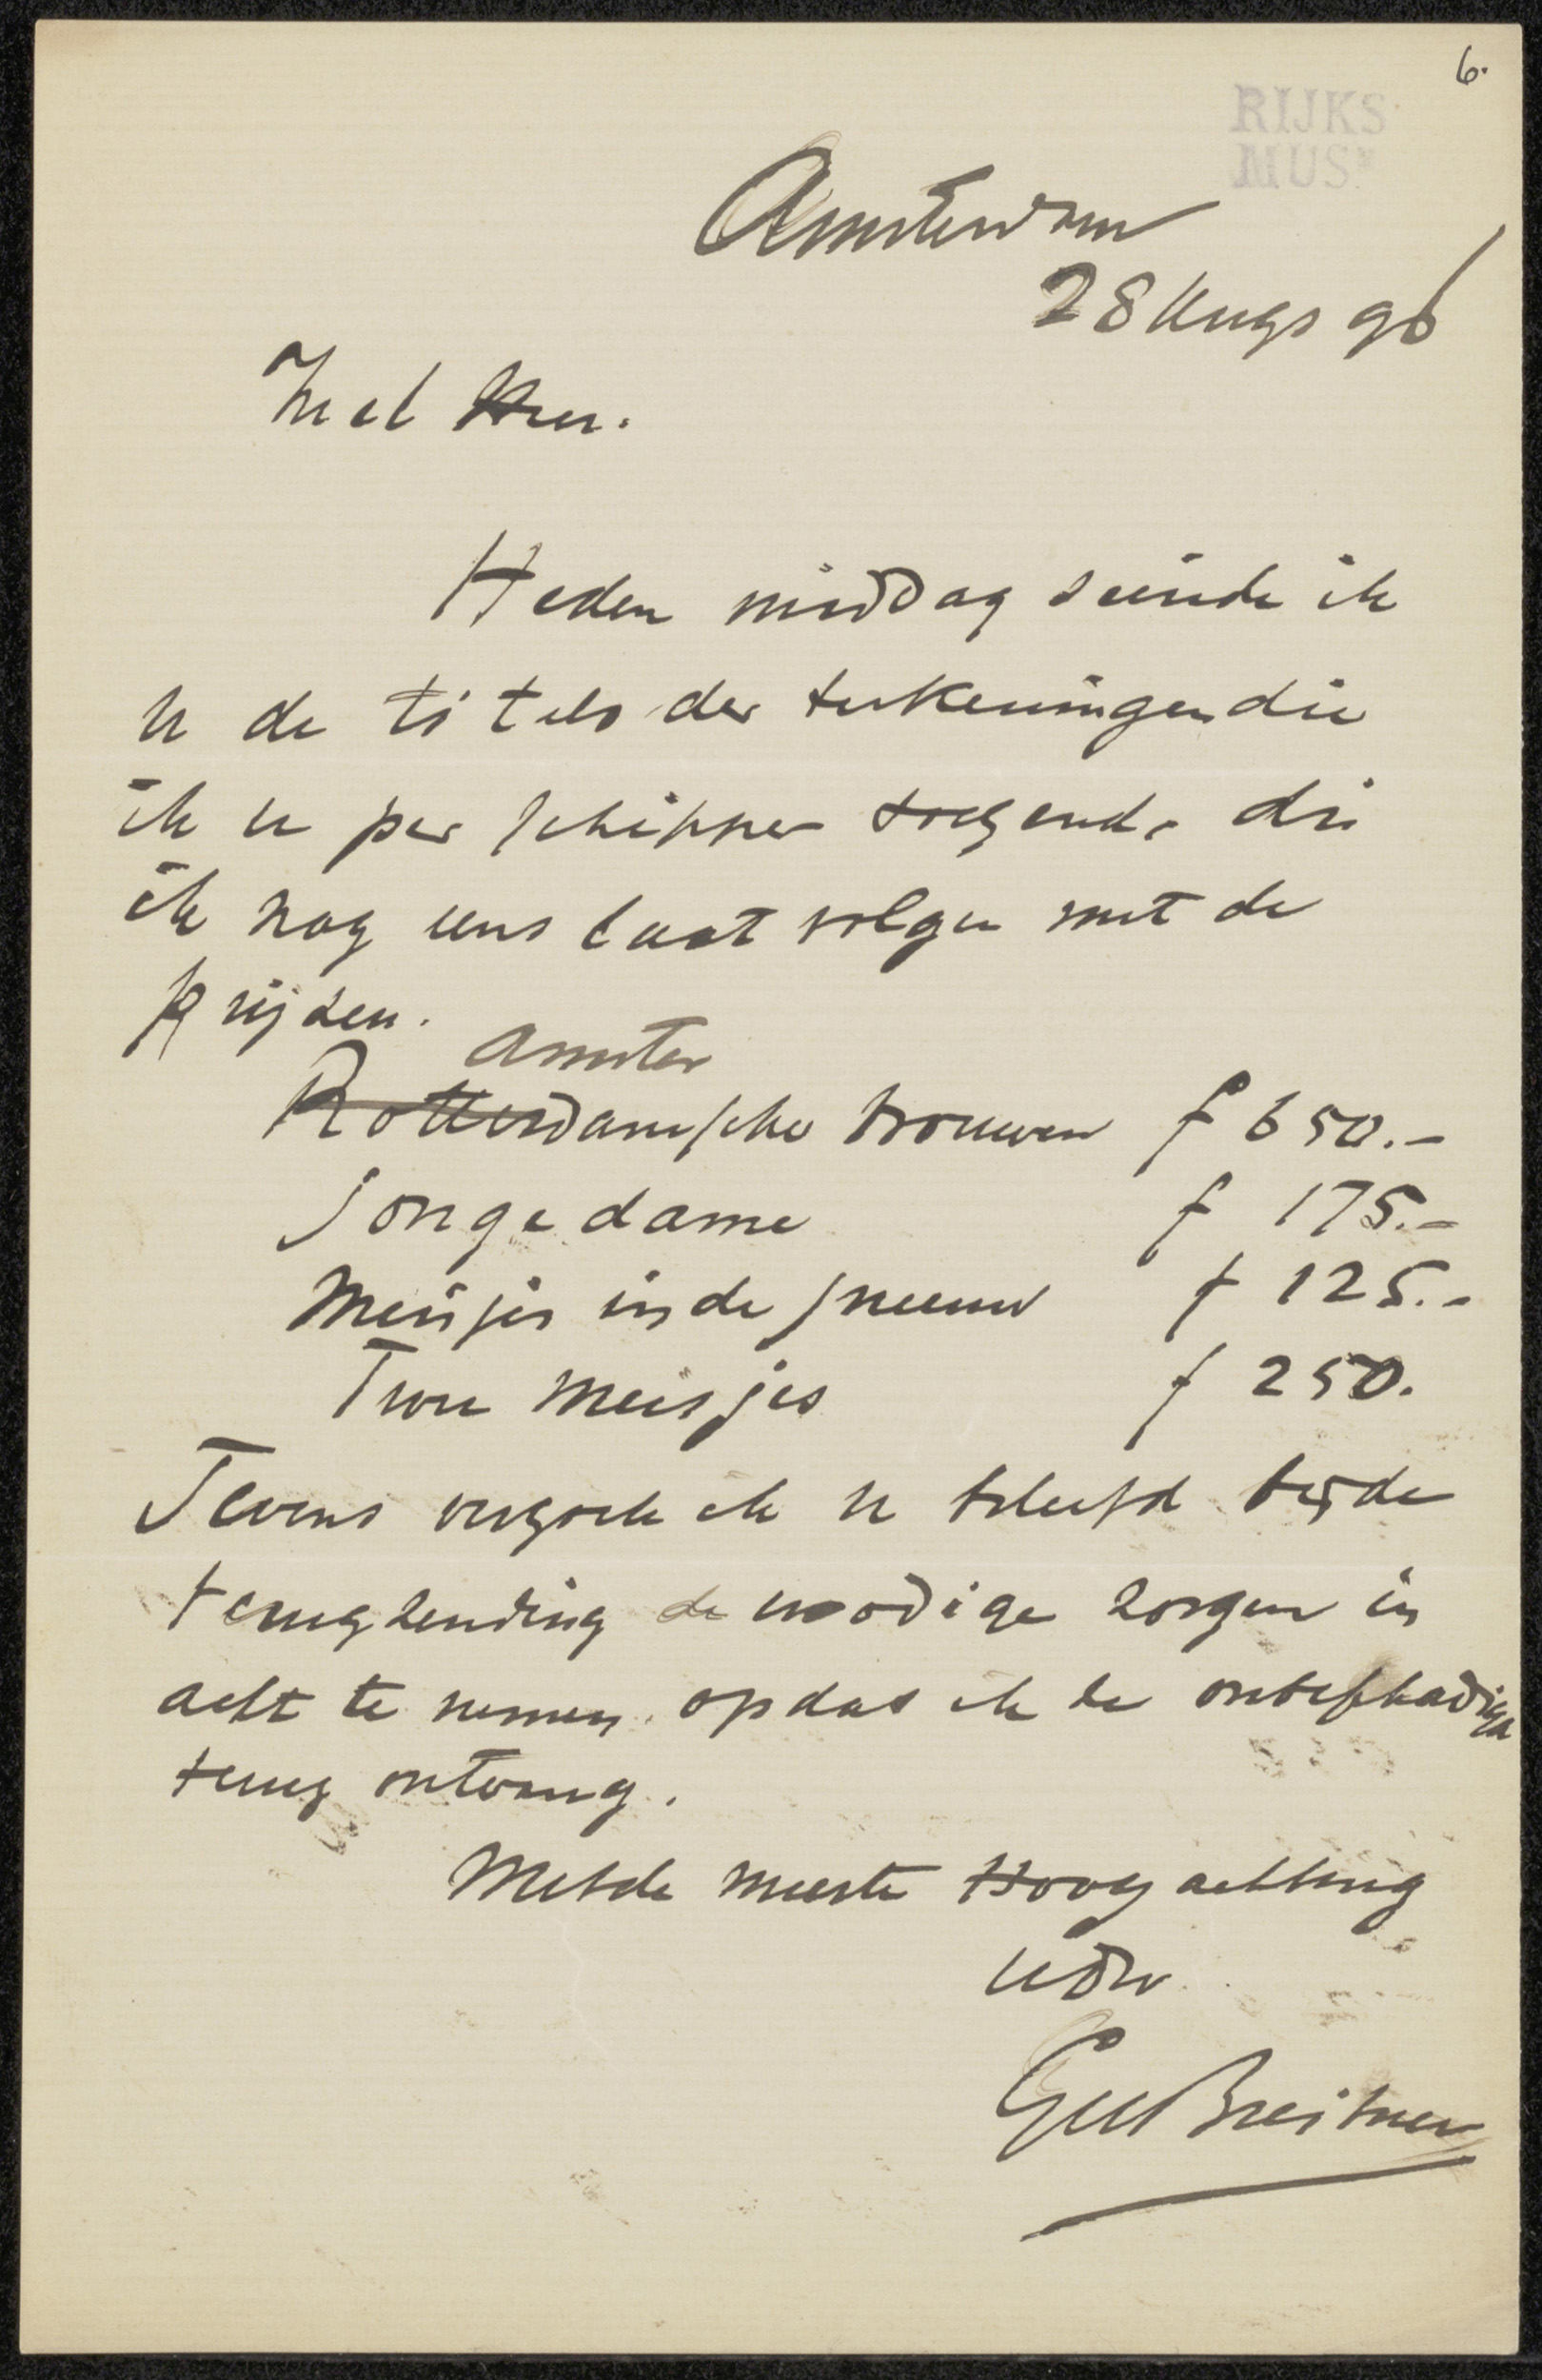 6.
RIJKS
MUSM
Amsterdam
28 Augs 96
Wel Heer.
Heden middag seinde ik
u de titels der teekeningen die
ik u per schipper toezend, die
ik nog eens laat volgen met de
prijzen.
Amster
Rotterdamsche vrouwen f 650.-
jonge dame f 175.-
Meisjes in de sneeuw f 125.-
Twee meisjes f 250.
Tevens verzoek ik u beleefd bij de
terugzending de noodige zorgen in
acht te nemen opdat ik ze onbeschadigd
terug ontvang.
Met de meeste Hoogachting
UEdw
GHBreitner